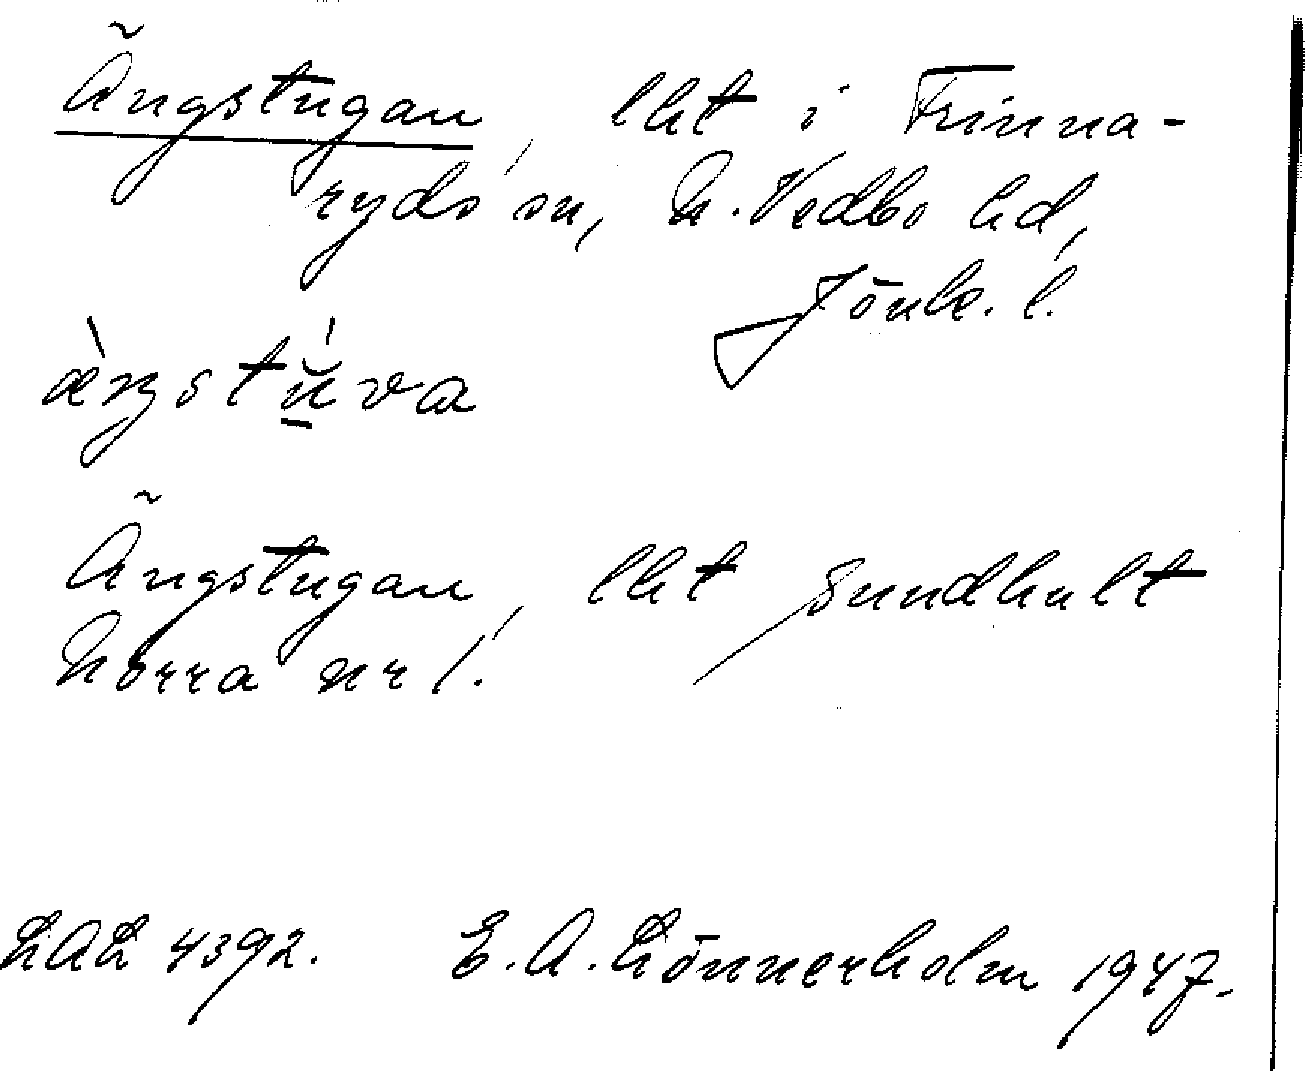 Ängstugan, lht i Frinna-
ryds sn, N. Vedbo hd,
Jönk. l.
æ̀ŋstŭ̱́va
Ängstugan, lht Sundhult
Norra nr 1.
LAL 4392. E. A. Lönnerholm 1947.